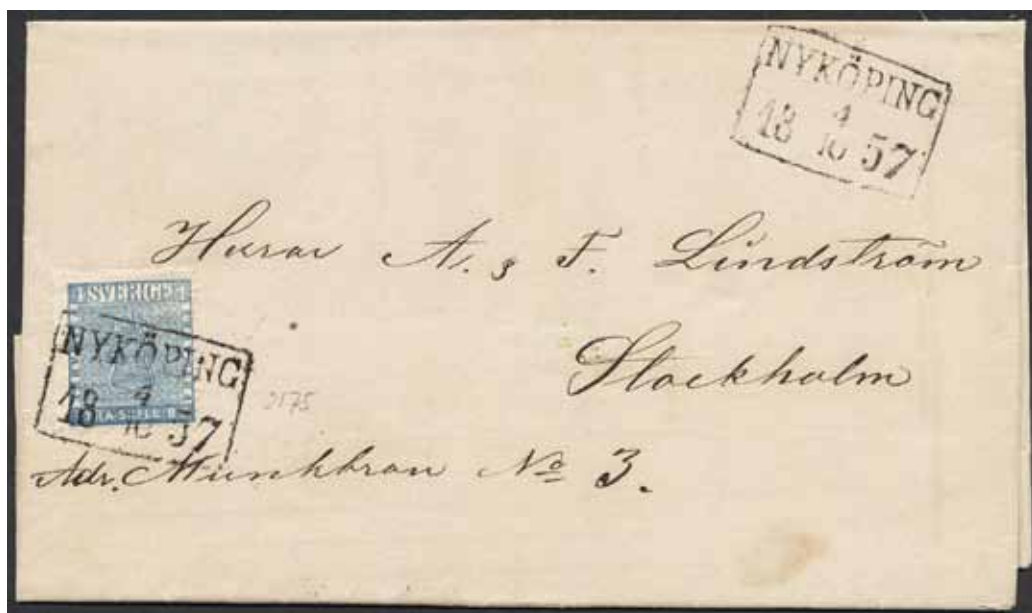 NYKÖPING
18 4/10 57
Herrar A. & F. Lindström
Stockholm
SVERIGE
NYKÖPING
18 4/10 57
2175
Adr. Munkbron No 3.